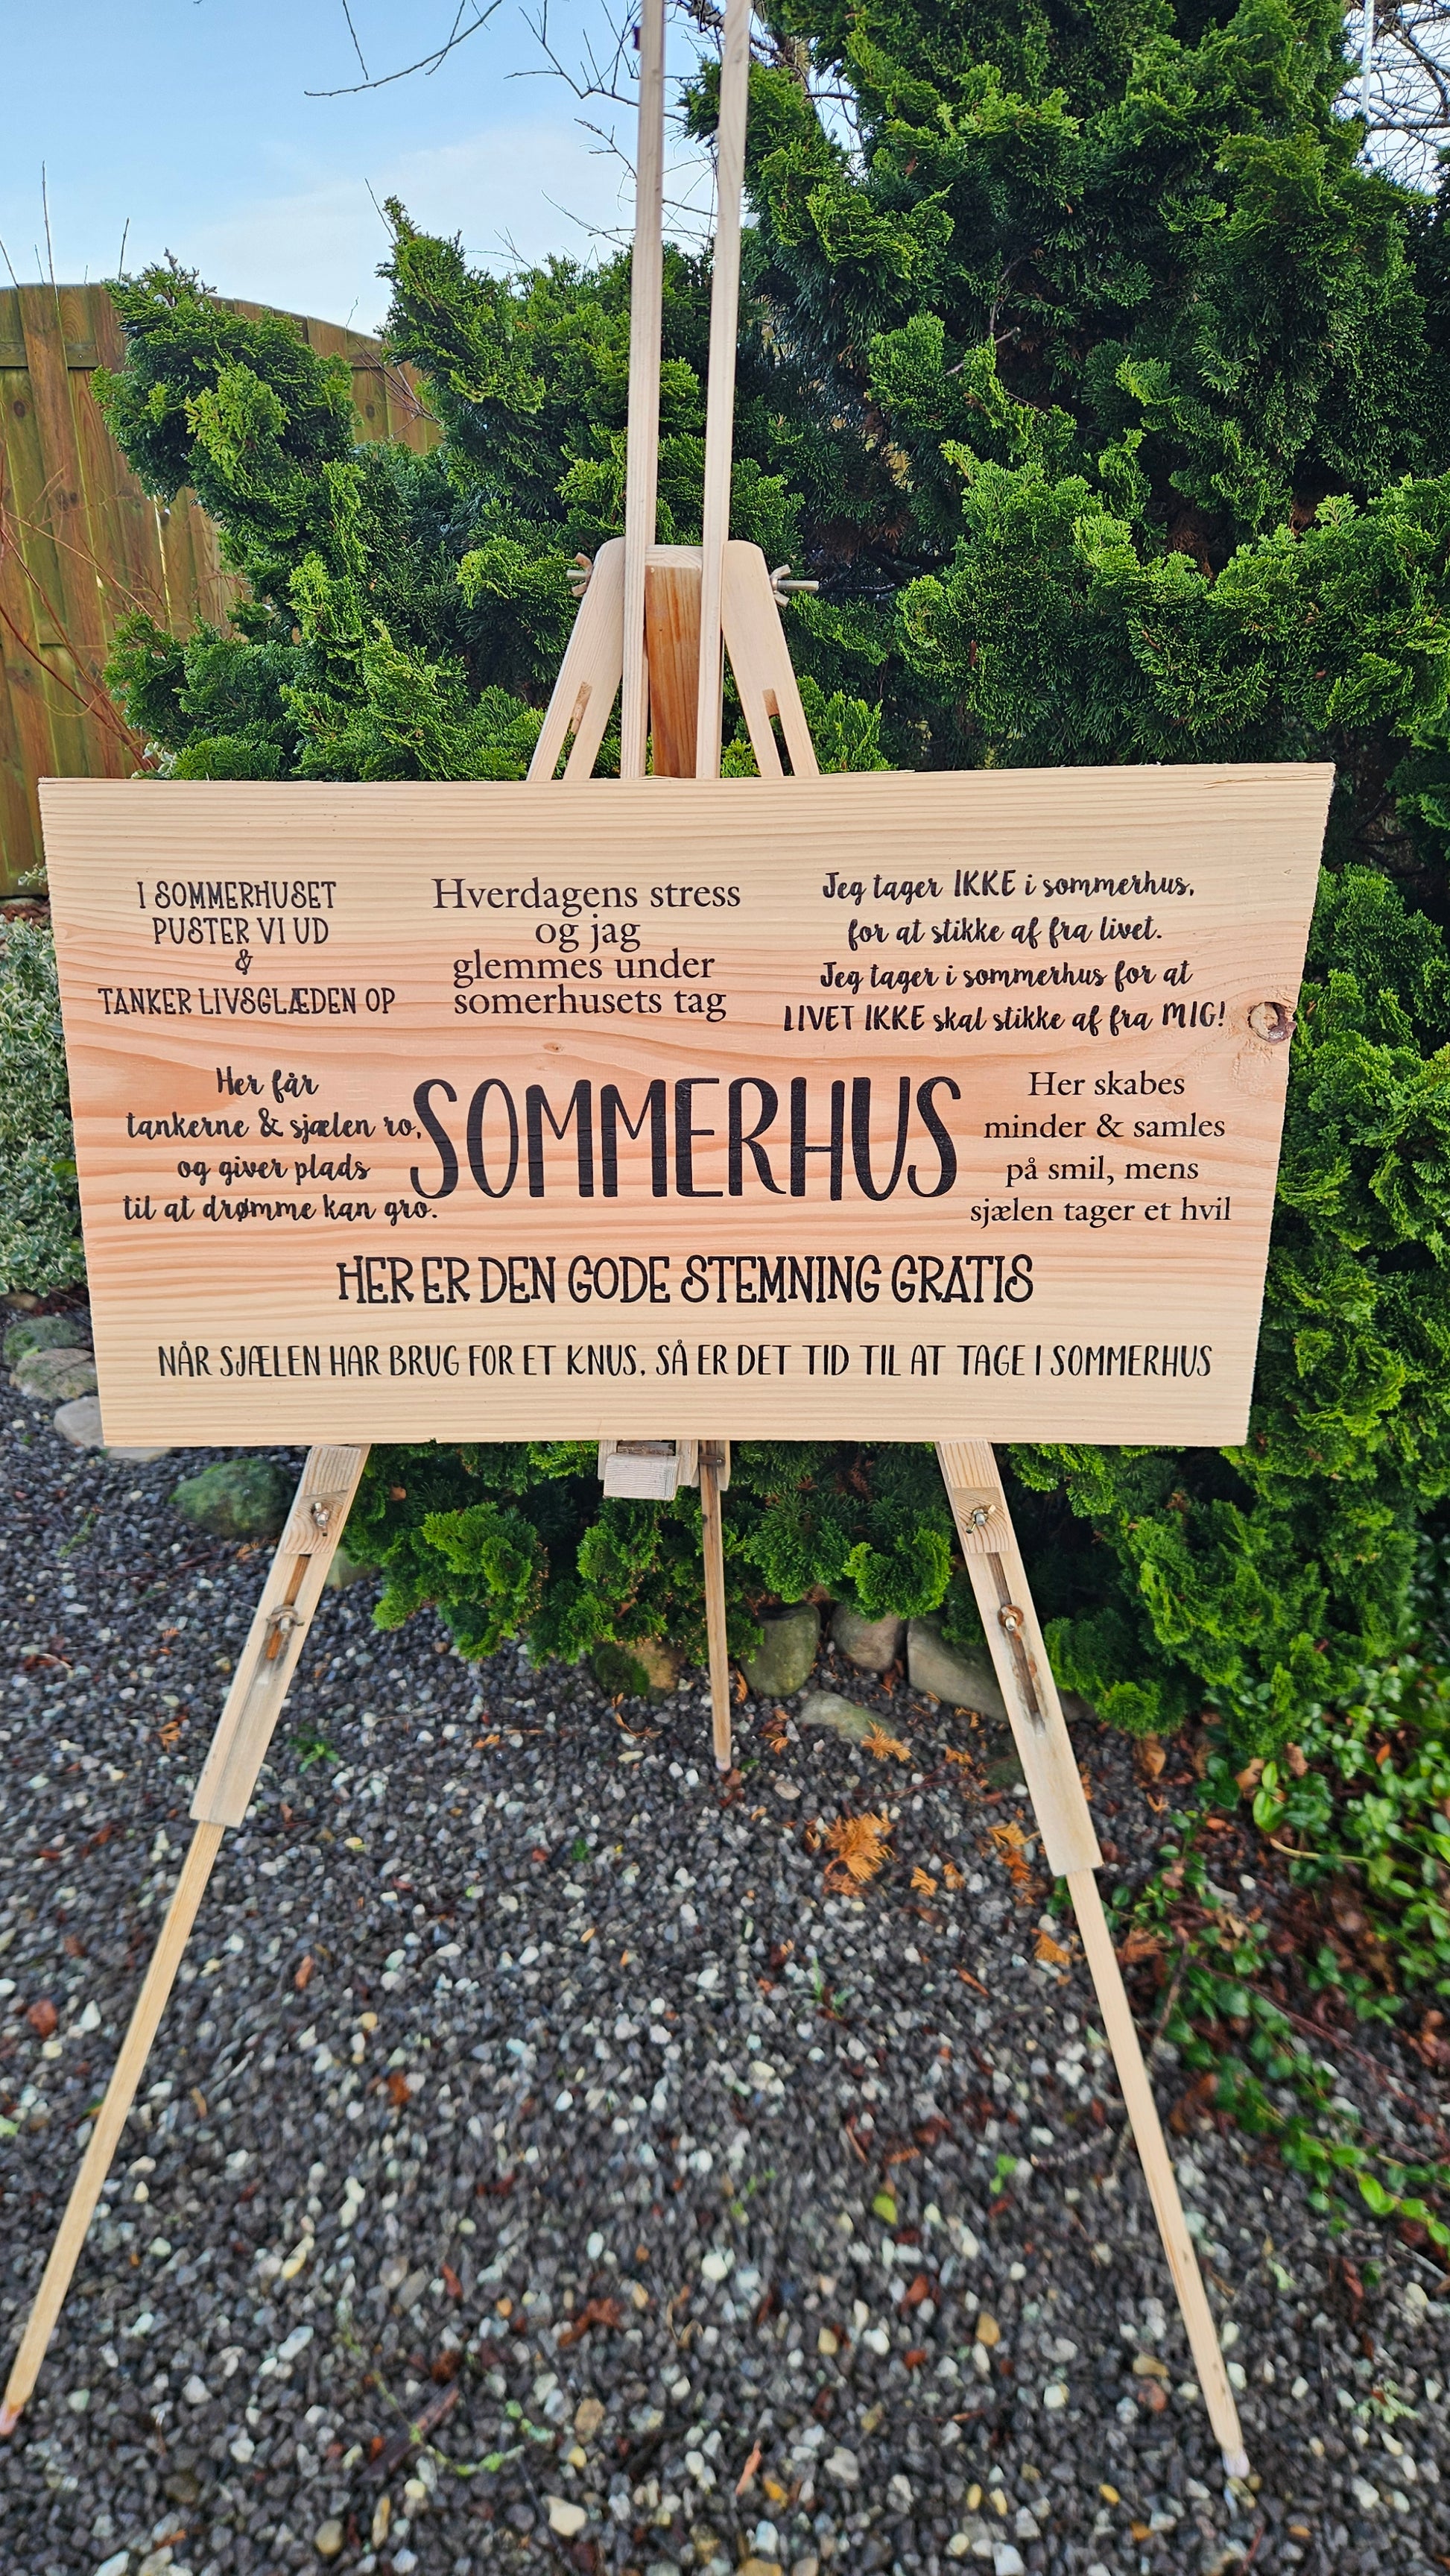 I SOMMERHUSET
PUSTER VI UD
&
TANKER LIVSGLÆDEN OP
Hverdagens stress
og jag
glemmes under
somerhusets tag
Jeg tager IKKE i sommerhus,
for at stikke af fra livet.
Jeg tager i sommerhus for at
LIVET IKKE skal stikke af fra MIG!
Her får
tankerne & sjælen ro,
og giver plads
til at drømme kan gro.
SOMMERHUS
Her skabes
minder & samles
på smil, mens
sjælen tager et hvil
HER ER DEN GODE STEMNING GRATIS
NÅR SJÆLEN HAR BRUG FOR ET KNUS, SÅ ER DET TID TIL AT TAGE I SOMMERHUS